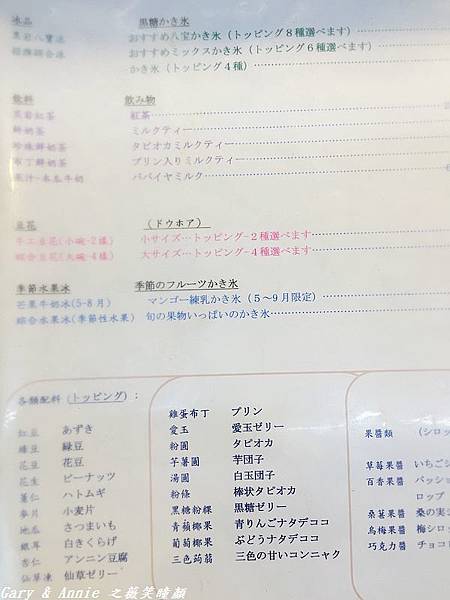 冰品 黒糖かき氷
黑岩八寶冰 おすすめ八宝かき氷（トッピング８種選べます）
招牌綜合冰 おすすめミックスかき氷（トッピング６種選べます）
かき氷（トッピング４種）
飲料 飲み物
黑岩紅茶 紅茶
鮮奶茶 ミルクティー
珍珠鮮奶茶 タピオカミルクティー
布丁鮮奶茶 プリン入りミルクティー
果汁-木瓜牛奶 パパイヤミルク
豆花 （ドウホア）
手工豆花(小碗-2樣) 小サイズ…トッピング-２種選べます
綜合豆花(大碗-4樣) 大サイズ…トッピング-４種選べます
季節水果冰 季節のフルーツかき氷
芒果牛奶冰(5-8月) マンゴー練乳かき氷（５～９月限定）
綜合水果冰(季節性水果) 旬の果物いっぱいのかき氷
各類配料（トッピング）：
紅豆 あずき
綠豆 緑豆
花豆 花豆
花生 ピーナッツ
薏仁 ハトムギ
麥片 小麦片
地瓜 さつまいも
銀耳 白きくらげ
杏仁 アンニン豆腐
仙草凍 仙草ゼリー
雞蛋布丁 プリン
愛玉 愛玉ゼリー
粉圓 タピオカ
芋薯圓 芋団子
湯圓 白玉団子
粉條 棒状タピオカ
黑糖粉粿 黒糖ゼリー
青蘋椰果 青りんごナタデココ
葡萄椰果 ぶどうナタデココ
三色蒟蒻 三色の甘いコンニャク
果醬類 （シロッ
草莓果醬 いちごシ
百香果醬 パッショ
ロップ
桑葚果醬 桑の実シ
烏梅果醬 梅シロッ
巧克力醬 チョコレ
Gary & Annie 之薇笑瞳顏